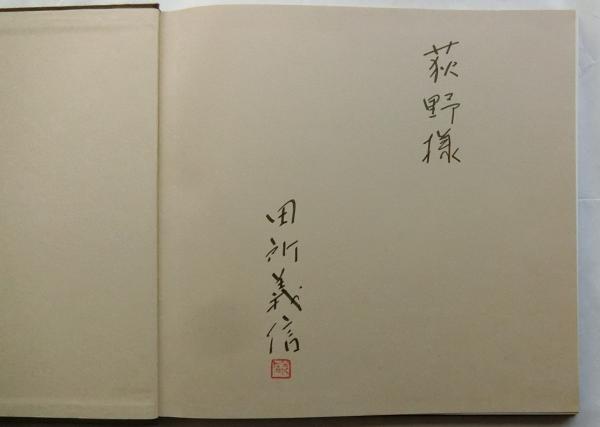 荻野様
田所義信